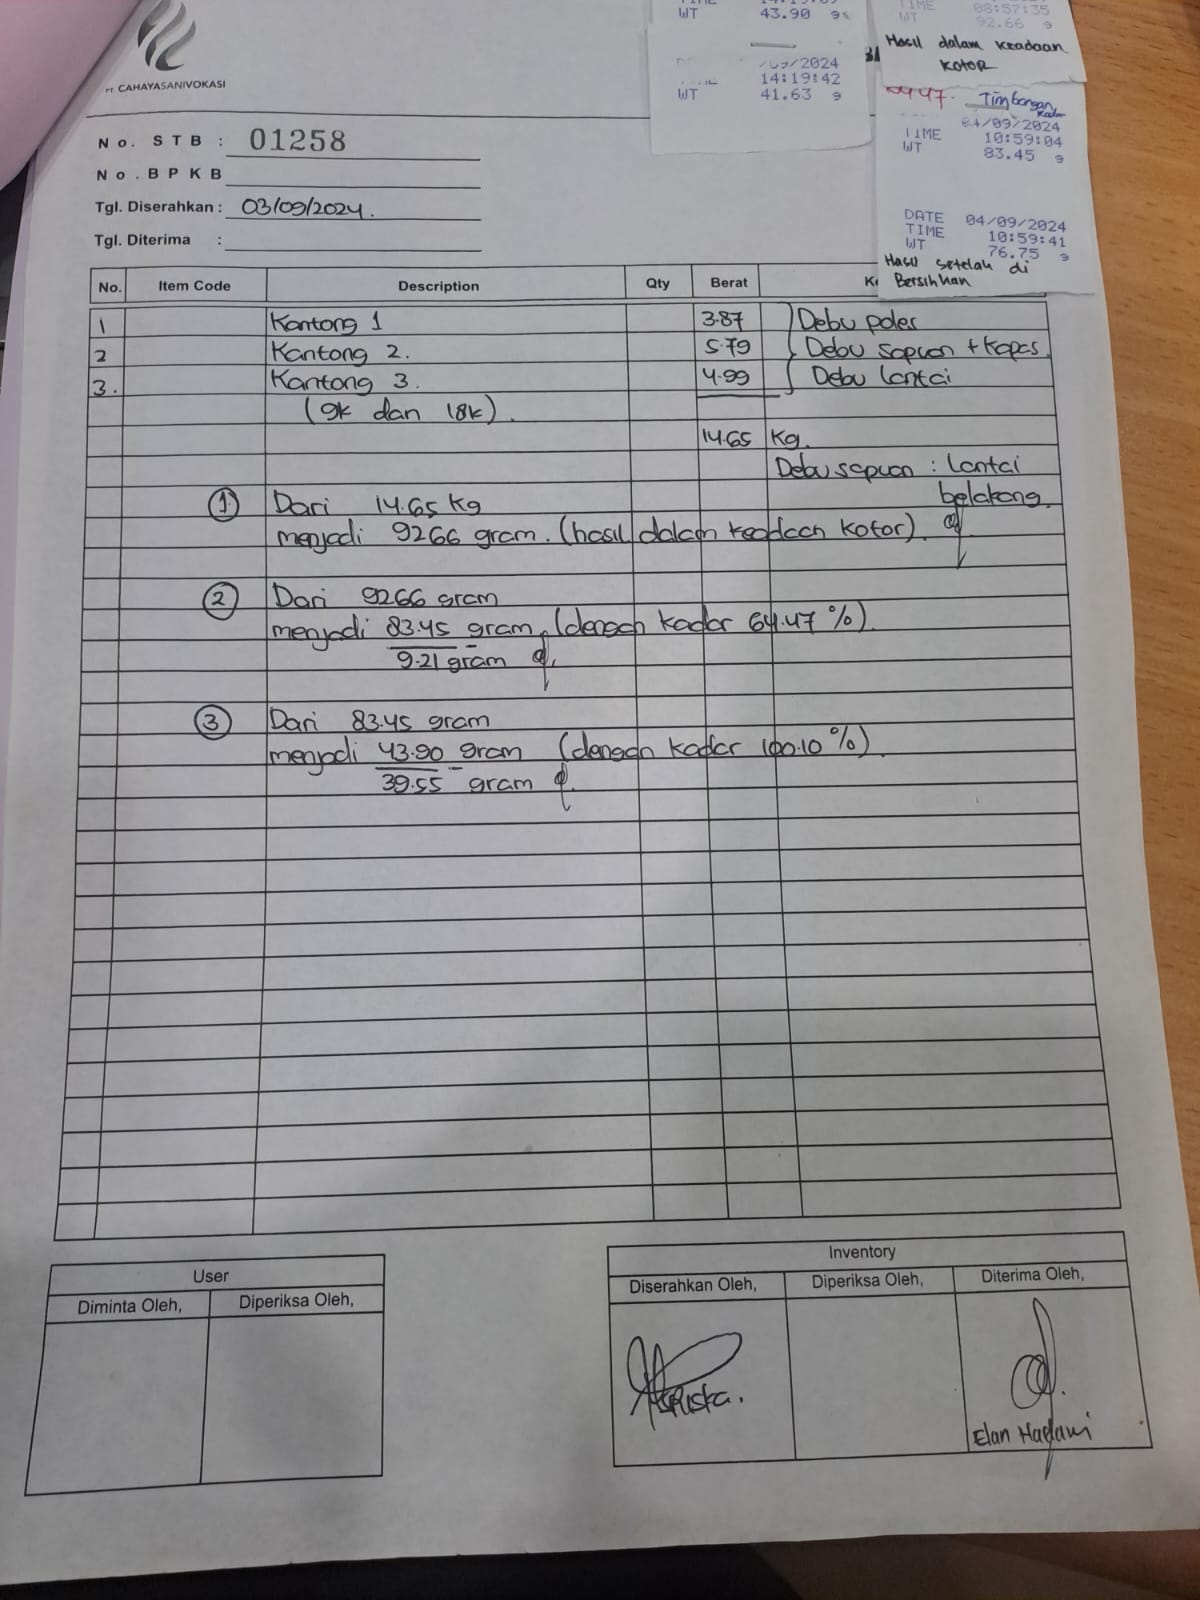 WT 43.90 g
/2024
14:19:42
WT 41.63 g
TIME 08:57:35
WT 92.66 g
Hasil dalam Keadaan
KOTOR
Timbangan
Kadar
04/09/2024
TIME 10:59:04
WT 83.45 g
DATE 04/09/2024
TIME 10:59:41
WT 76.75 g
Hasil setelah di
Bersihkan
PT. CAHAYASANIVOKASI
No. STB : 01258
No. BPKB
Tgl. Diserahkan : 03/09/2024.
Tgl. Diterima :
No. Item Code Description Qty Berat
1 Kantong 1 3.87 Debu poles
2 Kantong 2. 5.79 Debu sapuan + Kapas
3. Kantong 3. 4.99 Debu lantai
(9k dan 18k).
14.65 Kg.
Debu sapuan : lantai
belakang
1 Dari 14.65 Kg
menjadi 9266 gram. (hasil dalam keadaan kotor).
2 Dari 9266 gram
menjadi 83.45 gram (dengan kadar 64.47 %)
9.21 gram
3 Dari 83.45 gram
menjadi 43.90 gram (dengan kadar 100.10 %)
39.55 gram
User
Diminta Oleh, Diperiksa Oleh,
Inventory
Diserahkan Oleh, Diperiksa Oleh, Diterima Oleh,
Elan Hadani